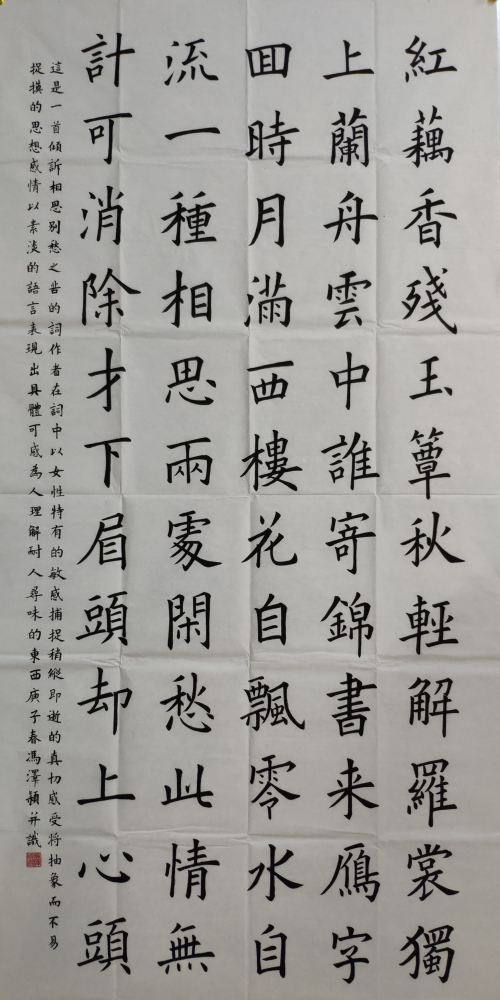 紅藕香殘玉簟秋輕解羅裳獨
上蘭舟雲中誰寄錦書来鴈字
囬時月滿西樓花自飄零水自
流一種相思兩處閑愁此情無
計可消除才下眉頭却上心頭
這是一首傾訴相思別愁之苦的詞作者在詞中以女性特有的敏感捕捉稍縱即逝的真切感受将抽象而不易
捉摸的思想感情以素淡的語言表現出具體可感為人理解耐人尋味的東西庚子春馮澤穎并識